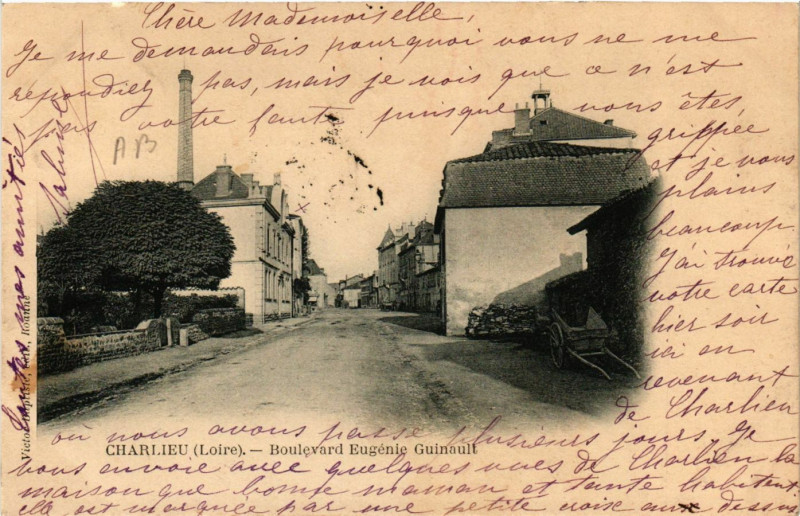 Chère Mademoiselle,
Je me demandais pourquoi vous ne me
repondiez pas, mais je vois que ce n'est
pas votre faute puisque vous êtes
grippée
et je vous
plains
beaucoup
J'ai trouvé
votre carte
hier soir
ici en
revenant
de Charlieu
où nous avons passé plusieurs jours. Je
vous envoie avec quelques vues de Charlieu la
maison que bonne maman et tante habitent
elle est marquée par une petite croix au dessus
toutes mes amitiés
AB
CHARLIEU (Loire). — Boulevard Eugénie Guinault
Roanne